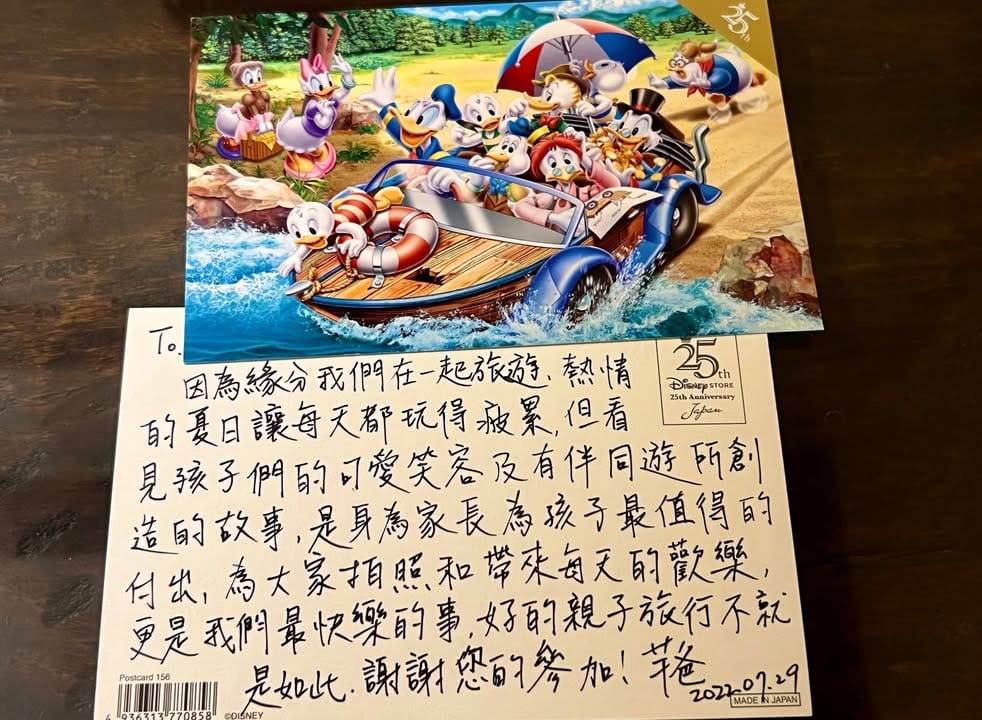 25th
To.
因為緣分我們在一起旅遊、熱情
的夏日讓每天都玩得疲累,但看
見孩子們的可愛笑容及有伴同遊所創
造的故事,是身為家長為孩子最值得的
付出,為大家拍照和帶來每天的歡樂,
更是我們最快樂的事,好的親子旅行不就
是如此.謝謝您的參加! 芊爸
2022.07.29
25th
Disney STORE
25th Anniversary
Japan
Postcard 156
4 936313 770858
©DISNEY
MADE IN JAPAN